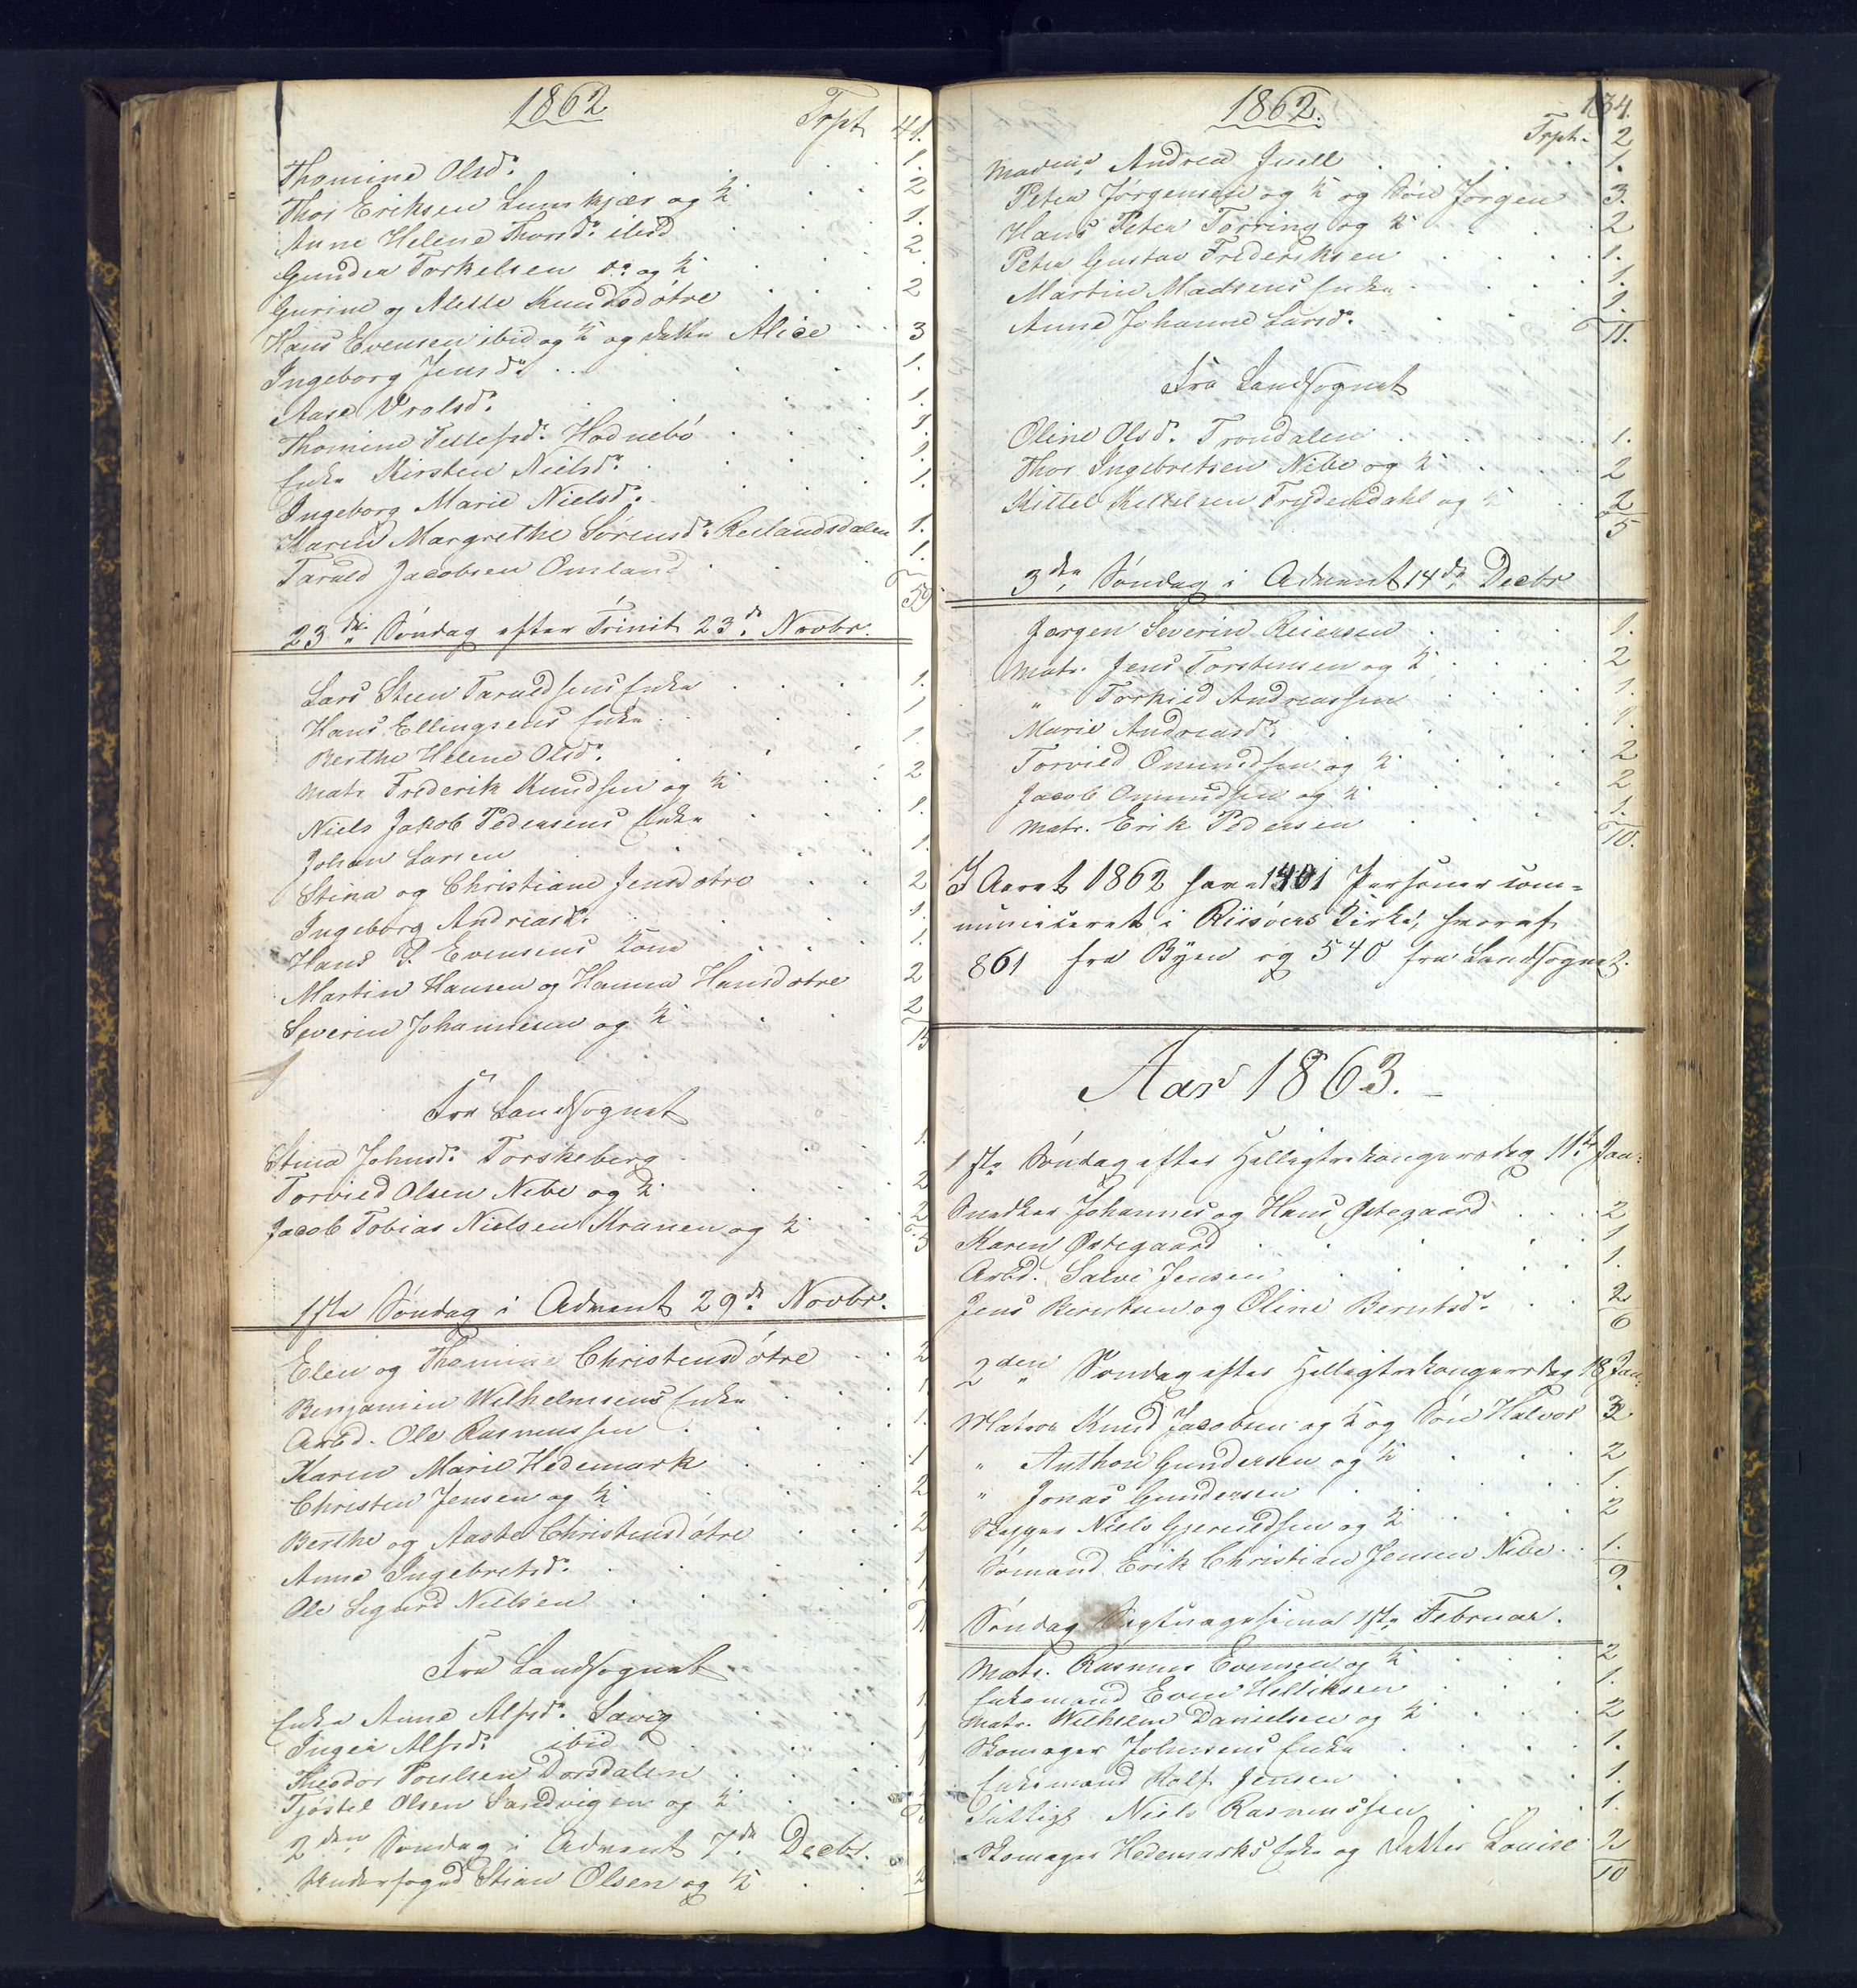 1862
Trpt 41.
Thomine Olsdr. 1.
Thor Eriksen Lunskjær og K 2
Anne Helene Thorsdr. ibid 1.
Gunder Torkelsen do og K 2.
Gurine og Aleste Knudsdótre 2
Hans Evensen ibid og K og Datter Alice 3
Ingeborg Jensdr. 1.
Aase Vrolsd. 1.
Thomine Tellefsd. Hódnebó 1.
Enke Kirsten Nielsdr. 1.
Ingeborg Marie Nielsd. 1.
Karen Margrethe Sórensdr. Reilandsdalen 1.
Tarald Jacobsen Omland 1.
59
23de Sóndag efter Trinit 23de Novbr.
Lars Steen Taraldsens Enke 1.
Hans Ellingsens Enke 1
Berthe Helene Olsdr. 1.
Matr. Frederik Knudsen og K 2
Niels Jakob Pedersens Enke 1.
Johan Larsen 1.
Stina og Christiane Jensdotre 2
Ingeborg Andreasdr. 1.
Hans P. Evensens Kone 1.
Martin Hansen og Hanna Hansdotre 2
Severin Johannesen og K 2
15
Fra Landsognet
Stina Johnsdr. Torskeberg 1.
Torvied Olsen Nibe og K 2
Jacob Tobias Nielsen Kranen og K 2
5
1ste Sóndag i Advent 29de Novbr.
Elen og Thomine Christensdótre 2
Benjamin Wilhelmsens Enke 1.
Arbd. Ole Rasmussen 1.
Karen Marie Hedemark 1
Christen Jensen og K 2
Berthe og Aaste Christensdótre 2
Anne Ingebretsd. 1
Ole Sigurd Nielsen 1
11
Fra Landsognet
Enke Anne Alfsd. Savig 1.
Inger Alfsdr. ibid 1
Theodor Poulsen Dorsdalen 1
Tjóstel Olsen Sandvigen og K 2
5
2den Sóndag i Advent 7de Decbr.
Underfoged Stian Olsen og K 2
1862.
134.
Trpt. 2
Madme Andrea Juell 1.
Peter Jórgensen og K og Són Jórgen 3.
Hans Peter Tórring og K 2
Peter Gustav Frederiksen 1.
Martin Madsens Enke 1.
Anne Johanne Larsdr. 1.
11.
Fra Landsognet
Oline Olsd. Trondalen 1.
Thor Ingebretsen Nibe og K 2
Kittel Kittelsen Frydendahl og K 2
5
3die Sóndag i Advent 14de Decbr
Jorgen Severin Reiersen 1.
Matr. Jens Torstensen og K 2
" Torkild Andreassen 1.
Marie Andreasdr. 1.
Torvied Omundsen og K 2
Jacob Omundsen og K 2
Matr. Erik Pedersen 1.
10.
I Aaret 1862 have 1401 Personer com=
municeret i Riisóers Kirke, hvoraf
861 fra Byen og 540 fra Landsognet.
Aar 1863.
1ste Sóndag efter Helligtrekongersdag 11te Jan:
Snedker Johannes og Hans Østegaard 2
Karen Østegaard 1
Arbd. Salve Jensen 1.
Jens Berntsen og Oline Berntsdr. 2
6
2den Sóndag efter Helligtrekongersdag 18 Jan:
Matros Knud Jacobsen og K og Són Halvor 3
" Anthon Gundersen og K 2
" Jonas Gundersen 1.
Skipper Niels Gjeruldsen og K 2
Sómand Erik Christian Jensen Nibe 1.
9.
Sóndag Septuagesima 1ste Februar.
Matr. Rasmus Evensen og K 2
Enkemand Even Helliksen 1.
Matr. Wilhelm Danielsen og K 2
Skomager Johnsens Enke 1.
Enkemand Rolf Jensen 1.
Fattigl. Niels Rasmussen 1.
Skomager Hedemarks Enke og Datter Louise 2
10